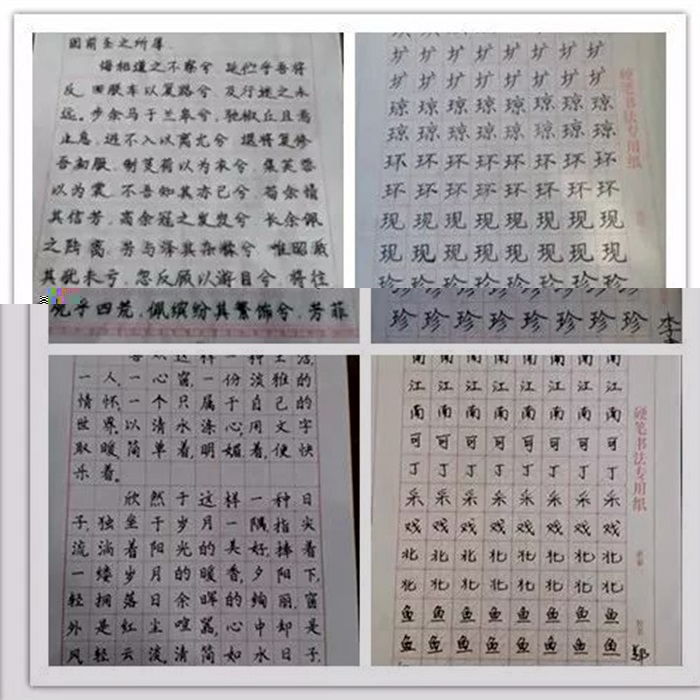 固前圣之所厚.
悔相道之不察兮.延伫乎吾将
反.回朕车以复路兮.及行迷之未
远。步余马于兰皋兮.驰椒丘且焉
止息.进不入以离尤兮.退将复修
吾初服.制芰荷以为衣兮.集芙蓉
以为裳.不吾知其亦已兮.苟余情
其信芳.高余冠之岌岌兮.长余佩
之陆离.芳与泽其杂糅兮.唯昭质
其犹未亏.忽反顾以游目兮.将往
观乎四荒.佩缤纷其繁饰兮.芳菲
圹圹圹圹圹圹圹圹
圹圹圹圹圹圹圹圹
琼琼琼琼琼琼琼琼
琼琼琼琼琼琼琼琼
环环环环环环环环
环环环环环环环环
现现现现现现现现
现现现现现现现现
珍珍珍珍珍珍珍珍
珍珍珍珍珍珍珍珍
硬笔书法专用纸
李
喜欢这样一种生活,
一人,一心窗,一份淡雅的
情怀,一个只属于自己的
世界.以清水涤心,用文字
取暖,简单着,明媚着,便快
乐着。
欣然于这样一种日
子,独坐于岁月一隅,指尖
流淌着阳光的美好,捧着
一缕岁月的暖香,夕阳下,
轻拥落日余晖的绚丽,窗
外是红尘喧嚣,心中却是
风轻云淡,清简如水日子.
南南南南南南南南
江江江江江江江江
南南南南南南南南
可可可可可可可可
丁丁丁丁丁丁丁丁
采采采采采采采采
戏戏戏戏戏戏戏戏
北北北北北北北北
北北北北北北北北
鱼鱼鱼鱼鱼鱼鱼鱼
鱼鱼鱼鱼鱼鱼鱼鱼
硬笔书法专用纸
郑